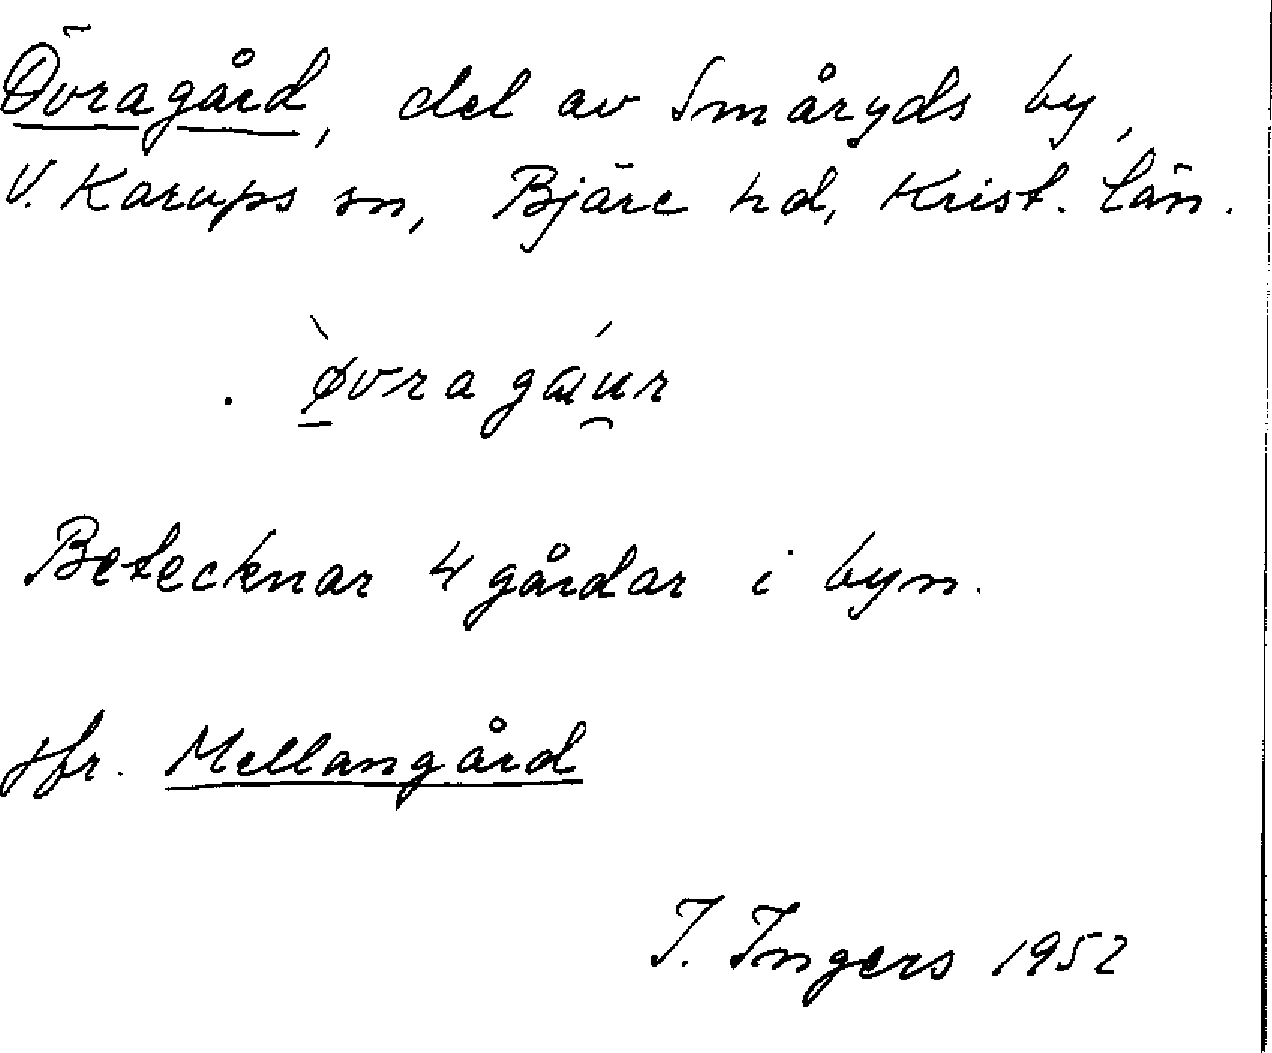 Övragård, del av Småryds by,
V. Karups sn, Bjäre hd, Krist. län.
. ø̀vragáu̯r
Betecknar 4 gårdar i byn.
Jfr. Mellangård
I. Ingers 1952